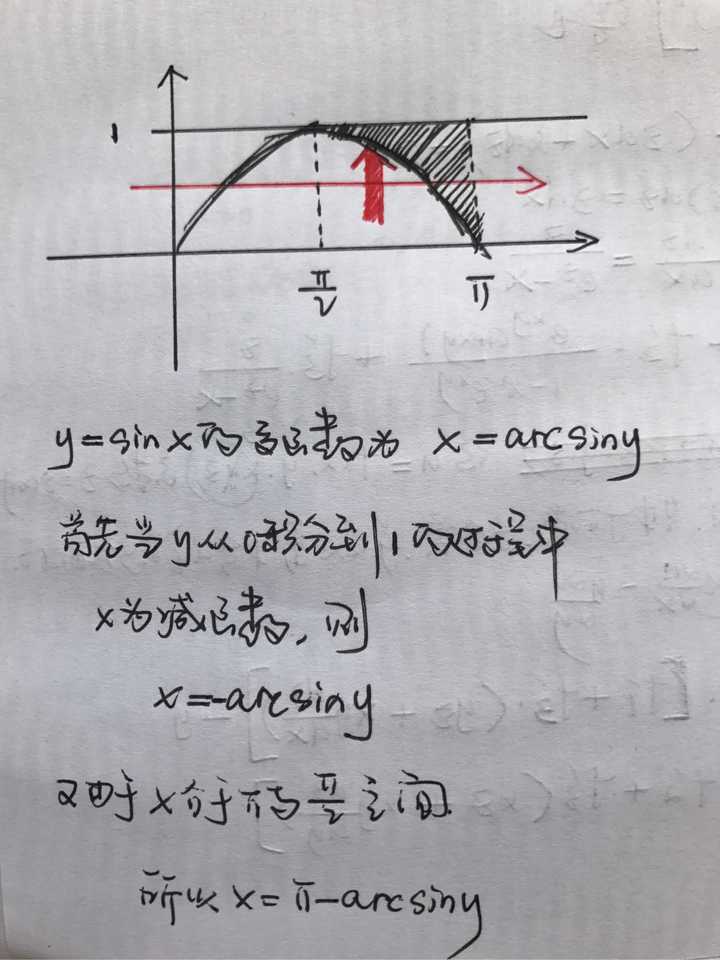 1
π/2
π
y=sinx的函数为 x=arcsiny
首先当y从0积分到1的过程中
x为减函数,则
x=-arcsiny
又由于x介于π与π/2之间
所以x=π-arcsiny